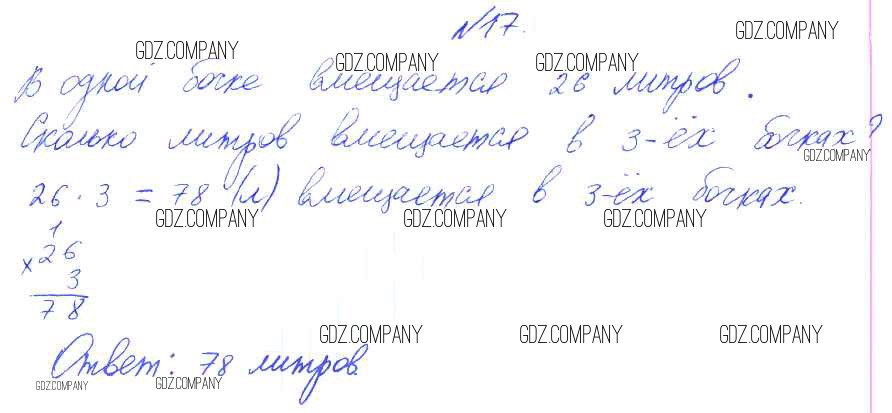 №17.
В одной бочке вмещается 26 литров.
Сколько литров вмещается в 3-ёх бочках?
26 · 3 = 78 (л) вмещается в 3-ёх бочках.
1
× 26
3
78
Ответ: 78 литров.
GDZ.COMPANY
GDZ.COMPANY
GDZ.COMPANY
GDZ.COMPANY
GDZ.COMPANY
GDZ.COMPANY
GDZ.COMPANY
GDZ.COMPANY
GDZ.COMPANY
GDZ.COMPANY
GDZ.COMPANY
GDZ.COMPANY
GDZ.COMPANY